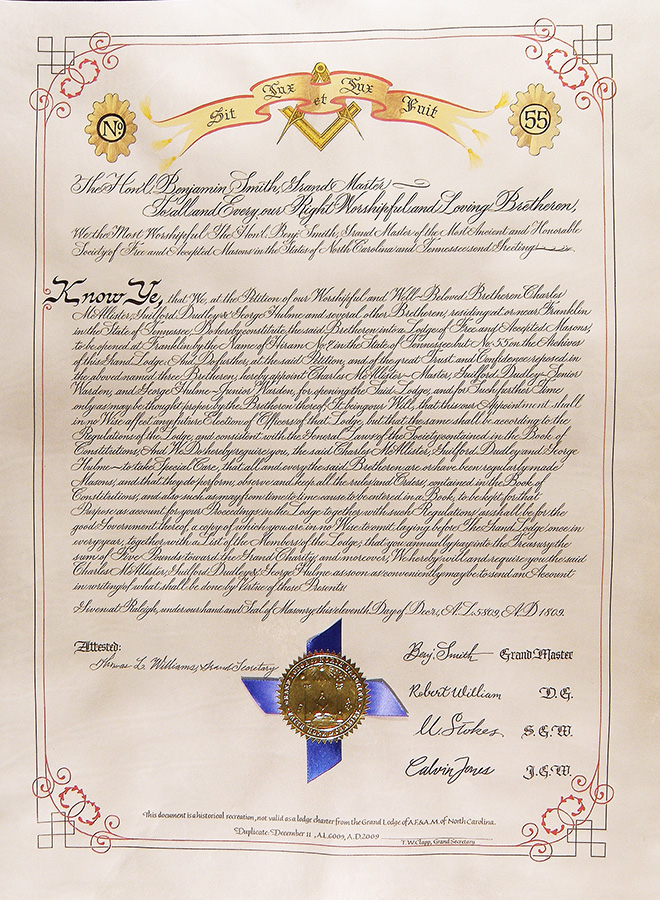 No.
Sit Lux et Lux Fuit
55
The Honl. Benjamin Smith, Grand Master
To all and Every our Right Worshipful and Loving Bretheren,
We the Most Worshipful The Hon'l. Benj. Smith, Grand Master of the Most Ancient and Honorable
Society of Free and Accepted Masons in the States of North Carolina and Tennessee send Greeting
Know Ye, that We, at the Petition of our Worshipful and Well-Beloved Bretheren Charles
McAllister, Guilford Dudley & George Hulme and several other Bretheren, residing at or near Franklin
in the State of Tennessee, Do hereby constitute the said Bretheren into a Lodge of Free and Accepted Masons,
to be opened at Franklin by the Name of Hiram No. 7 in the State of Tennessee but No. 55 on the Archives
of this Grand Lodge. And Do further, at the said Petition, and of the great Trust and Confidence reposed in
the above named three Bretheren, hereby appoint Charles McAllister—Master, Guilford Dudley—Senior
Warden, and George Hulme—Junior Warden, for opening the Said Lodge, and for Such further Time
only as may be thought proper by the Bretheren thereof, it being our Will, that this our Appointment shall
in no Wise affect any future Election of Officers of that Lodge, but that the same shall be according to the
Regulations of the Lodge, and consistent with the General Laws of the Society contained in the Book of
Constitutions, And We Do hereby require you, the said Charles McAllister, Guilford Dudley and George
Hulme—to take Special Care, that all and every the said Bretheren are or have been regularly made
Masons, and that they do perform, observe and keep all the rules and Orders, contained in the Book of
Constitutions, and also such as may from time to time cause to be entered in a Book, to be kept for that
Purpose as account for your Proceedings in the Lodge together with such Regulations as shall be for the
good Government thereof, a copy of which you are in no Wise to omit laying before The Grand Lodge once in
every year, together with a List of the Members of the Lodge; that you annually pay into the Treasury the
sum of Five Pounds toward the Grand Charity, and moreover, We hereby will and require you the said
Charles McAllister, Guilford Dudley & George Hulme as soon as conveniently may be to send an Account
in writing of what shall be done by Virtue of these Presents.
Given at Raleigh, under our hand and Seal of Masonry this eleventh Day of Decr., A.L. 5809, A.D. 1809.
Attested:
Thomas L. Williams, Grand Secretary
Benj. Smith Grand Master
Robert William D.G.
M. Stokes S.G.W.
Calvin Jones J.G.W.
This document is a historical recreation, not valid as a lodge charter from the Grand Lodge of A.F. & A.M. of North Carolina.
Duplicate: December 11, A.L. 6009, A.D. 2009
T. W. Clapp, Grand Secretary